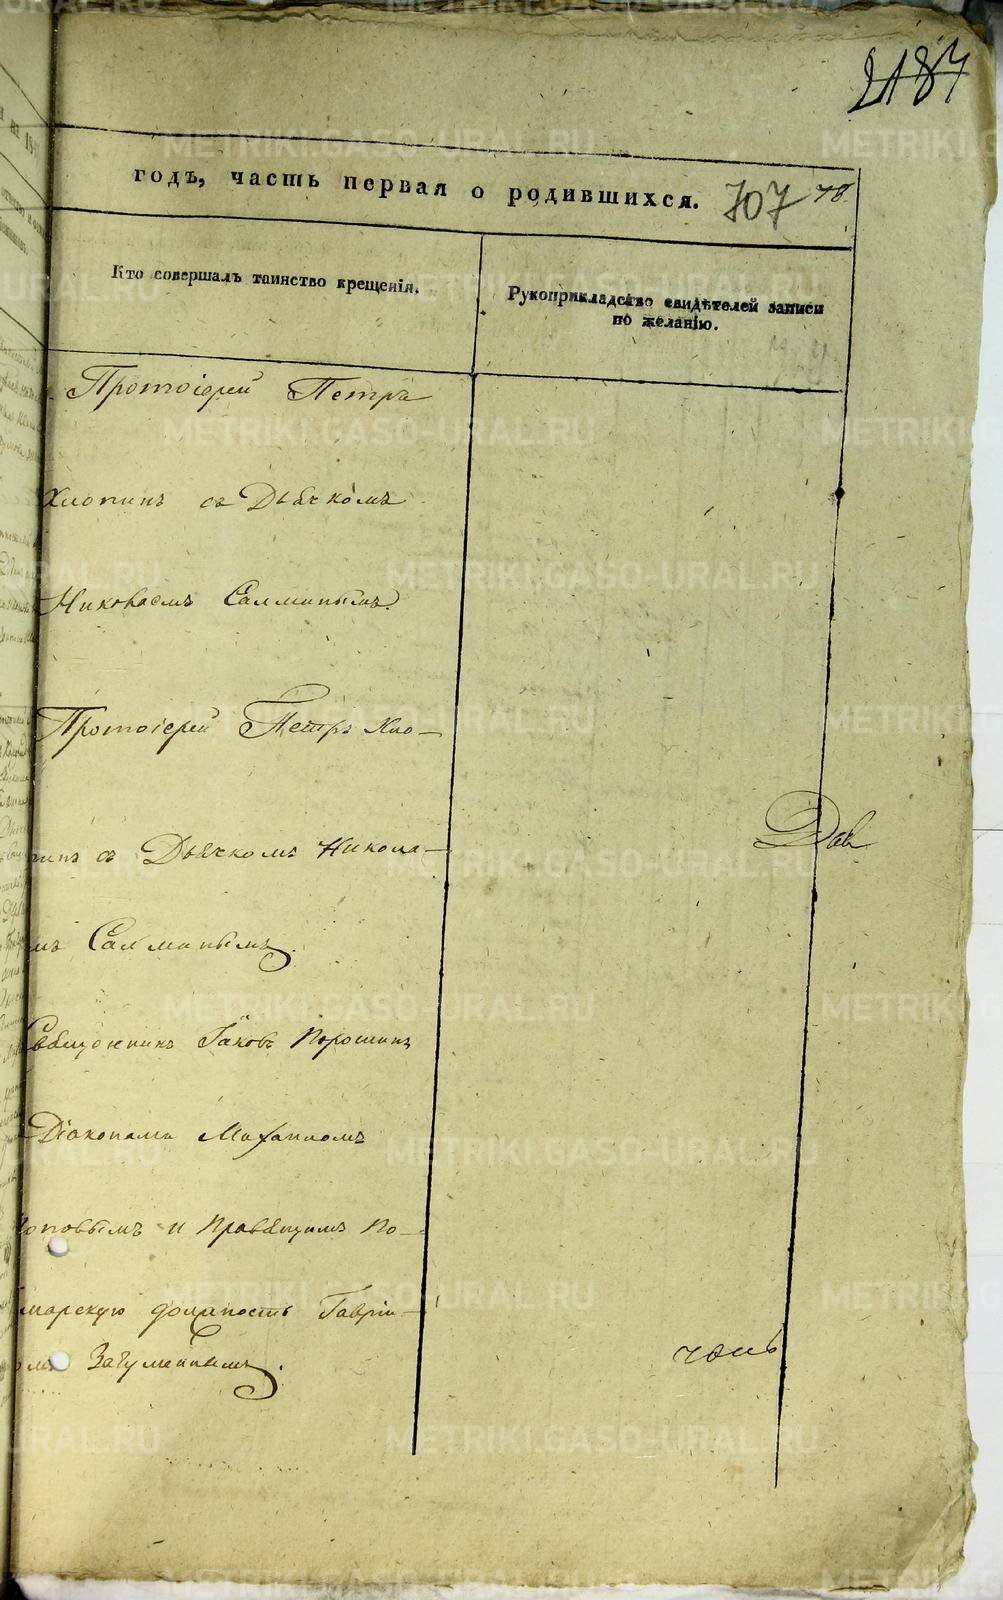 2187
годъ, часть первая о родившихся. 707 78.
Кто совершалъ таинство крещенія.
Рукоприкладство свидѣтелей записи
по желанію.
Протоіерей Петръ
Хлопинъ съ Дьячкомъ
Николаемъ Салминымъ
Протоіерей Петръ Хло-
пинъ съ Дьячкомъ Никола-
мъ Салминымъ
Дав
Священникъ Іаковъ Порошинъ
Діаконами Михаиломъ
Поповымъ и Правящимъ По-
марскую должность Гавріи-
ломъ Загуменнымъ.
METRIKI.GASO-URAL.RU